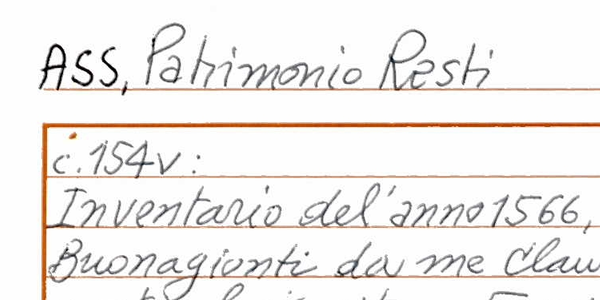 ASS, Patrimonio Resti
c.154v:
Inventario del'anno 1566,
Buonagionti da me Clau